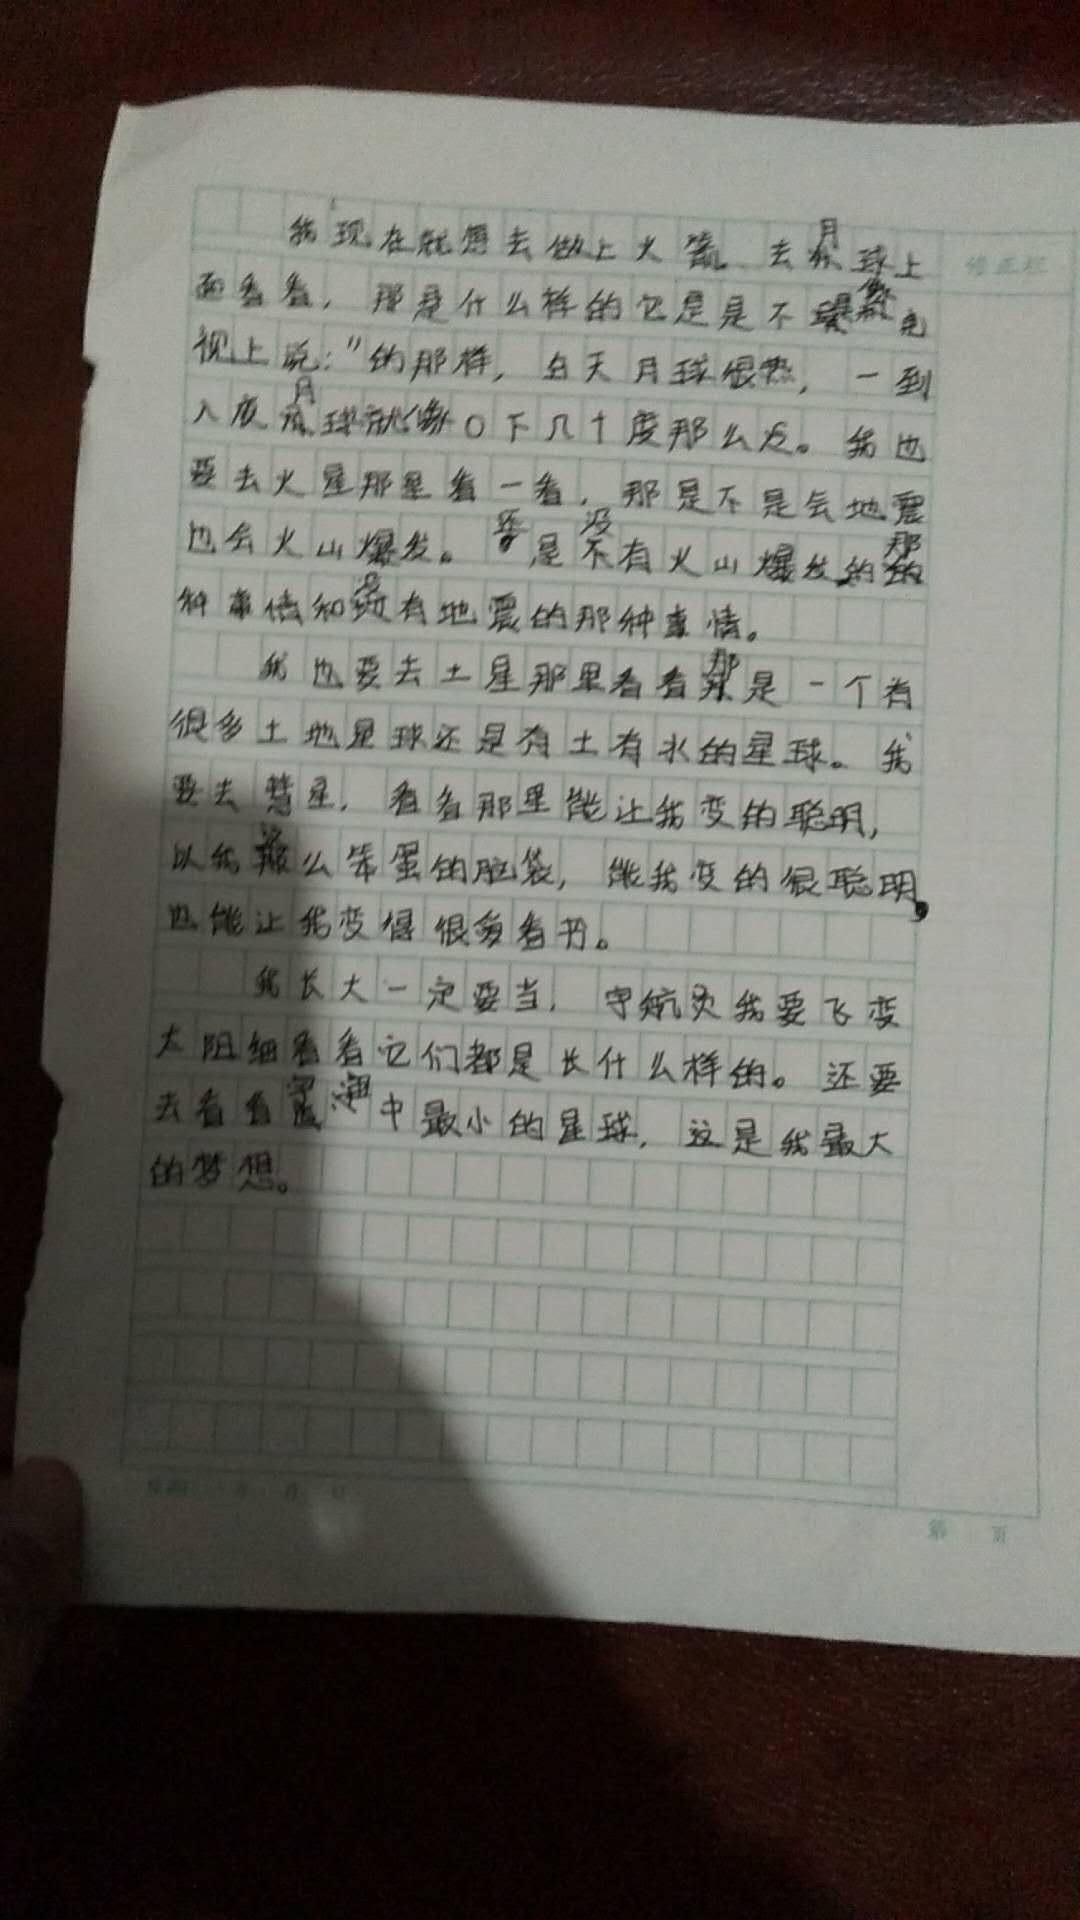 我现在就想去做上火箭。去月球上
修正栏
面看看，那是什么样的它是是不是像电
视上说：”的那样，白天月球很热，一到
入夜月球就像0下几十度那么冷。我也
要去火星那里看一看，那是不是会地震
也会火山爆发。还是没有火山爆发的那
种事情和没有地震的那种事情。
我也要去土星那里看看那是一个有
很多土地星球还是有土有水的星球。我
要去慧星，看看那里能让我变的聪明，
以我这么笨蛋的脑袋，能我变的很聪明，
也能让我变得很多看书。
我长大一定要当，宇航员我要飞变
太阳细看看它们都是长什么样的。还要
去看看宇宙中最小的星球，这是我最大
的梦想。
第 页